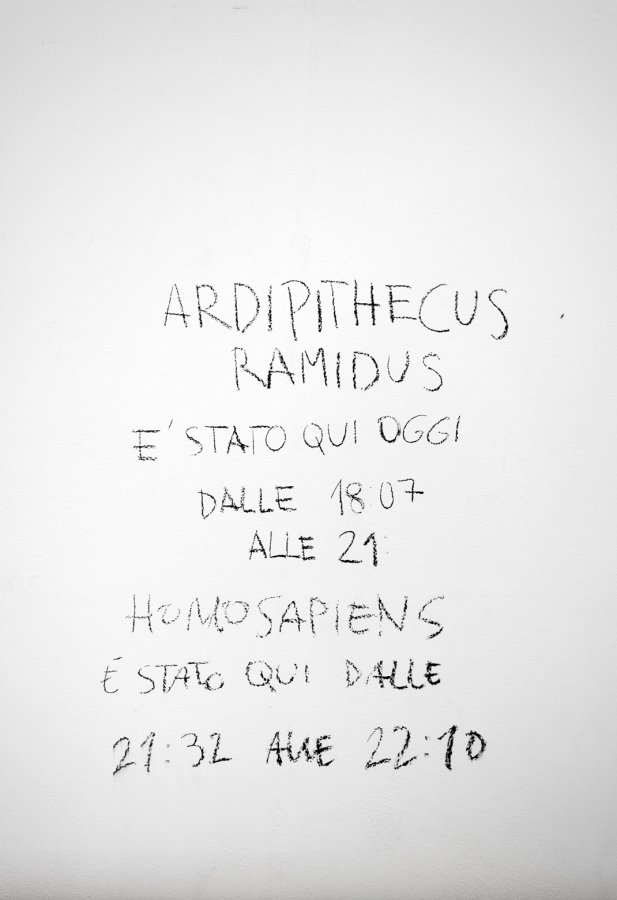 ARDIPITHECUS
RAMIDUS
E' STATO QUI OGGI
DALLE 18:07
ALLE 21:
HOMO SAPIENS
É STATO QUI DALLE
21:32 ALLE 22:10